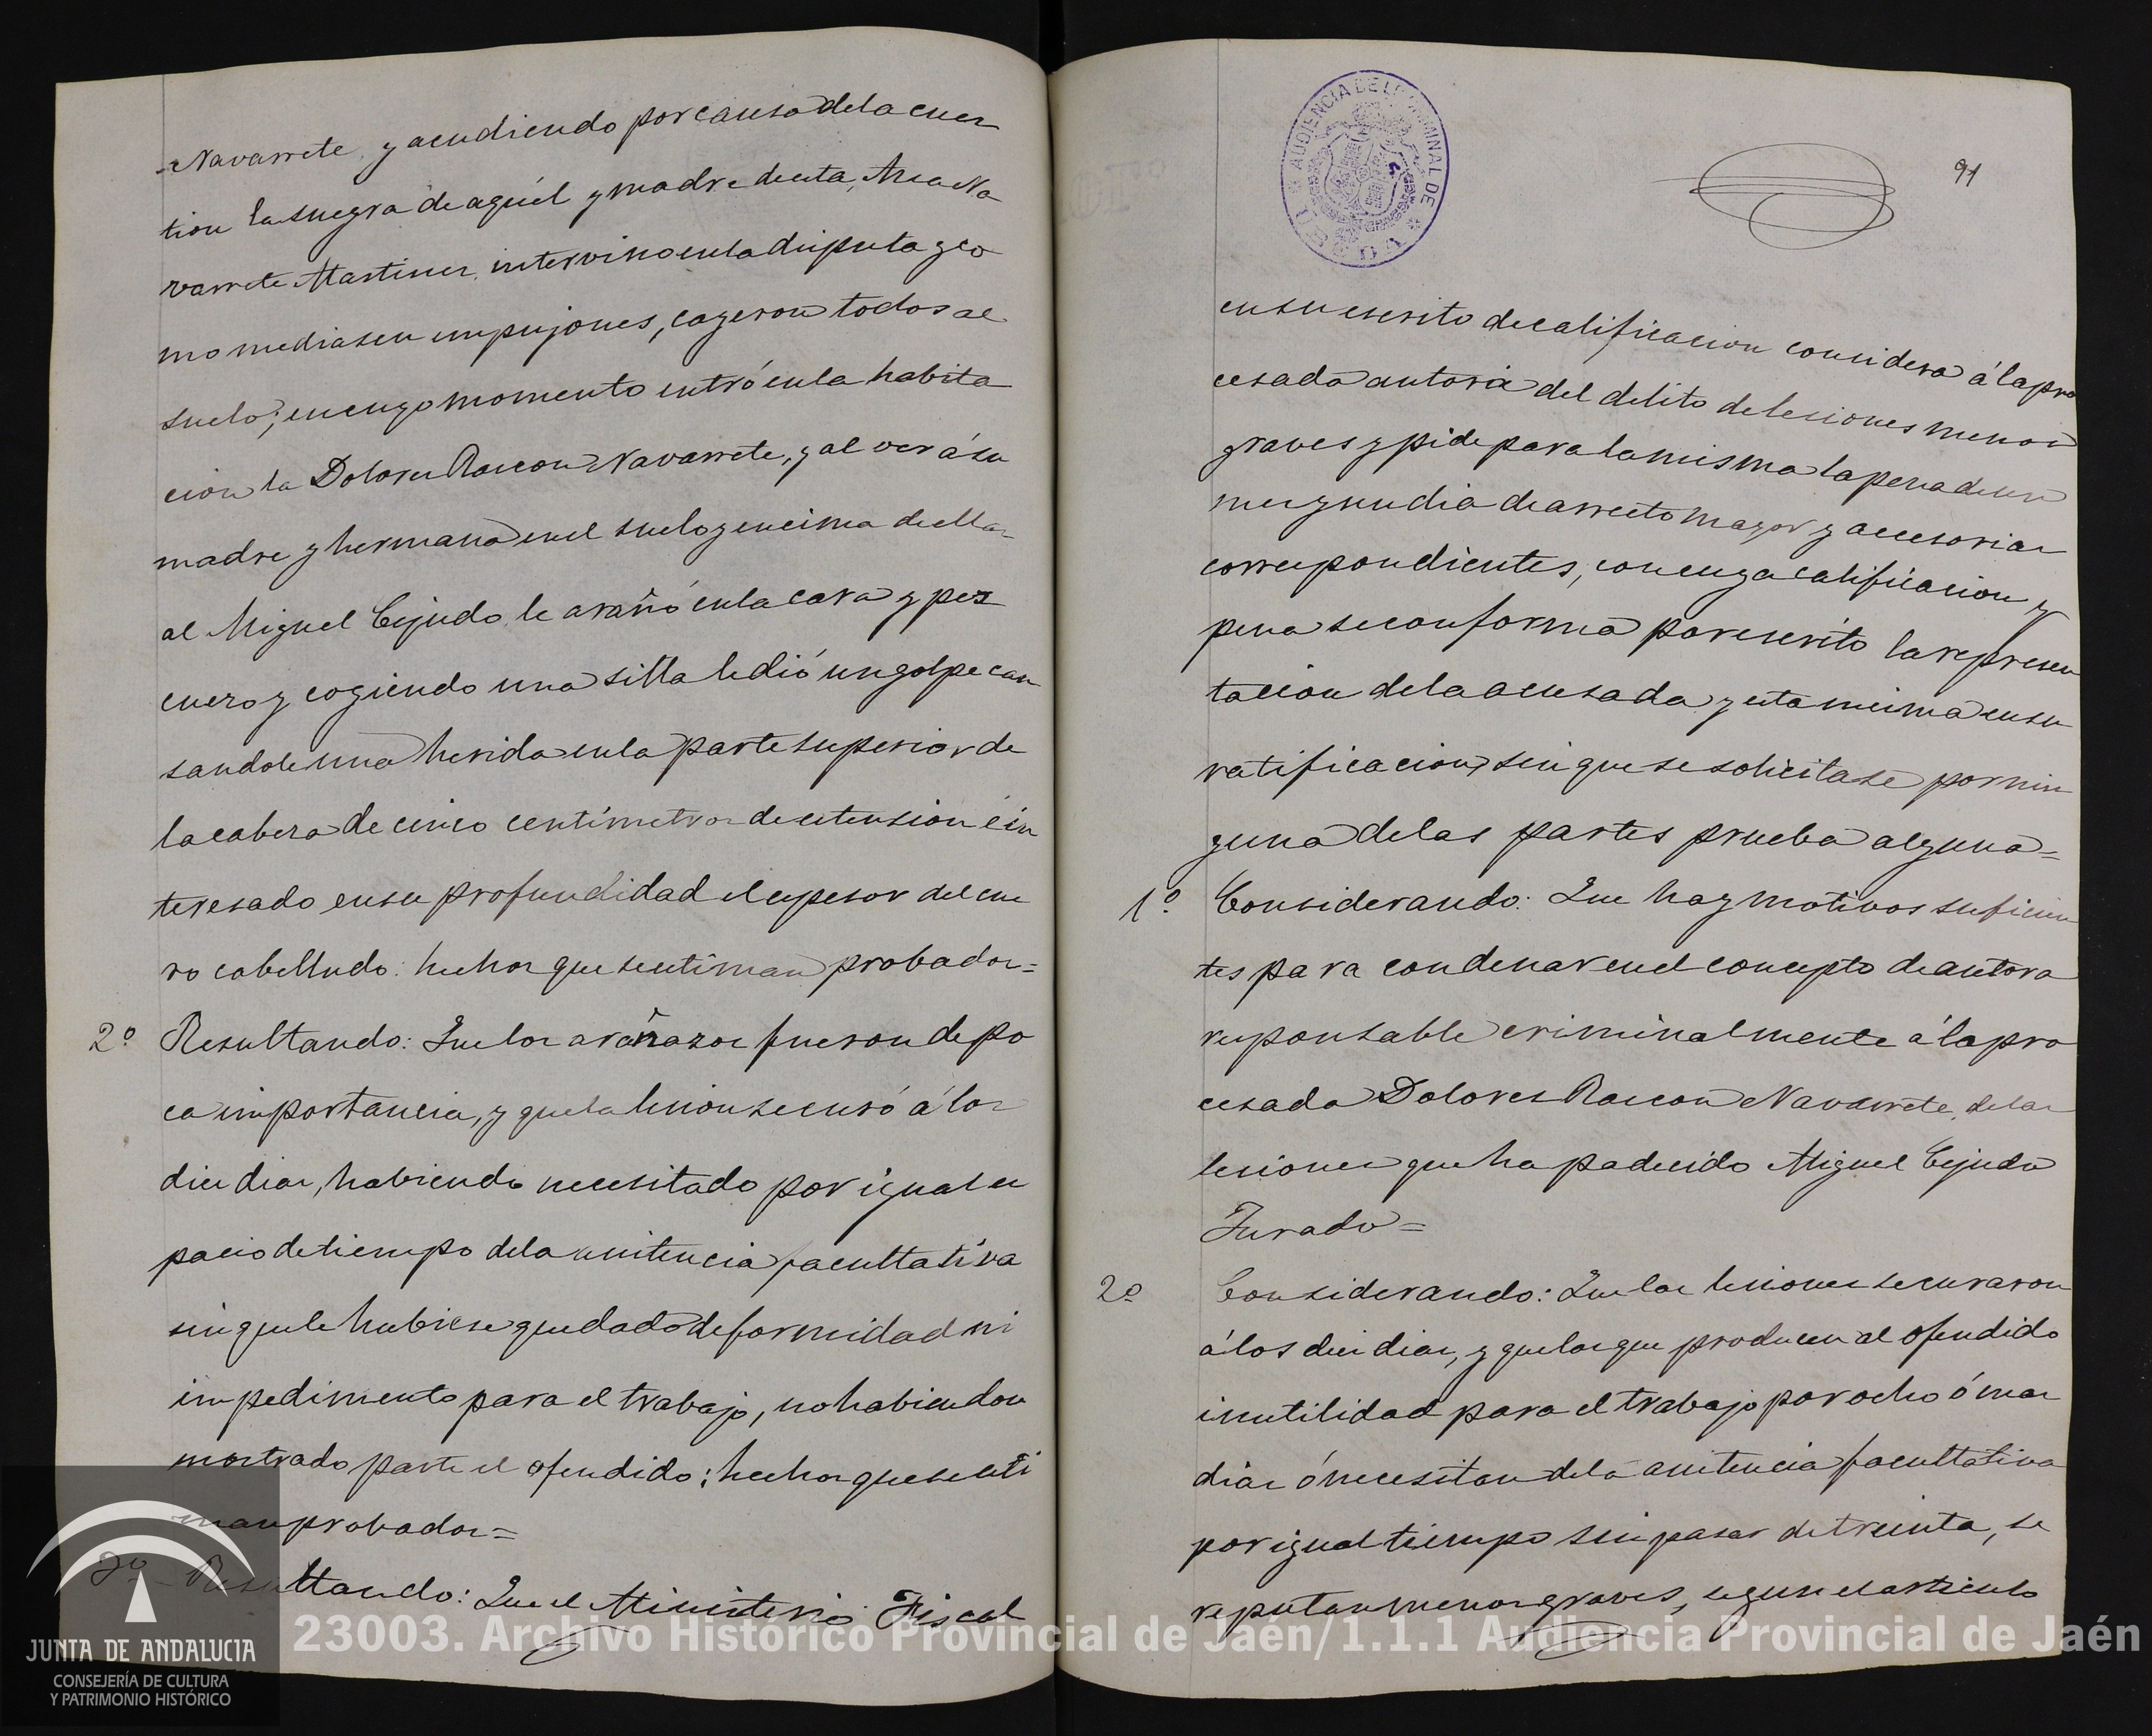 Navarrete, y acudiendo por causa de la cues
tion la suegra de aquél y madre de esta, Ana Na
varrete Martinez, intervino en la disputa y co
mo mediasen empujones, cayeron todos al
suelo; en cuyo momento entró en la habita
cion la Dolores Rascon Navarrete, y al ver á su
madre y hermana en el suelo y encima de ellas
al Miguel Cejudo, le arañó en la cara y pes
cuezo y cogiendo una silla le dió un golpe cau
sandole una herida en la parte superior de
la cabeza de cinco centimetros de estension é in
teresado en su profundidad el espesor del cue
ro cabelludo: hechos que se estiman probados=
2º Resultando: Que los arañazos fueron de po
ca importancia, y que la lesion se curó á los
diez dias, habiendo necesitado por igual es
pacio de tiempo de la asistencia facultativa
sin que le hubiese quedado deformidad ni
impedimento para el trabajo, no habiendose
mostrado parte el ofendido; hechos que se esti
man probados=
3º Resultando: Que el Ministerio Fiscal
AUDIENCIA DE LO CRIMINAL DE
UBEDA
91
en su escrito de calificacion considera á la pro
cesada autora del delito de lesiones menos
graves y pide para la misma la pena de un
mes y un dia de arresto mayor y accesorias
correspondientes, con cuya calificacion y
pena se conforma por escrito la represen
tacion de la acusada y esta misma en su
ratificacion, sin que se solicitase por nin
guna de las partes prueba alguna=
1º Considerando: Que hay motivos suficien
tes para condenar en el concepto de autora
responsable criminalmente á la pro
cesada Dolores Rascon Navarrete, de las
lesiones que ha padecido Miguel Cejudo
Jurado=
2º Considerando: Que las lesiones se curaron
á los diez dias, y que las que producen al ofendido
inutilidad para el trabajo por ocho ó mas
dias ó necesitan de la asistencia facultativa
por igual tiempo sin pasar de treinta, se
reputan menos graves, segun el articulo
JUNTA DE ANDALUCIA
CONSEJERÍA DE CULTURA
Y PATRIMONIO HISTÓRICO
23003. Archivo Histórico Provincial de Jaén/1.1.1 Audiencia Provincial de Jaén